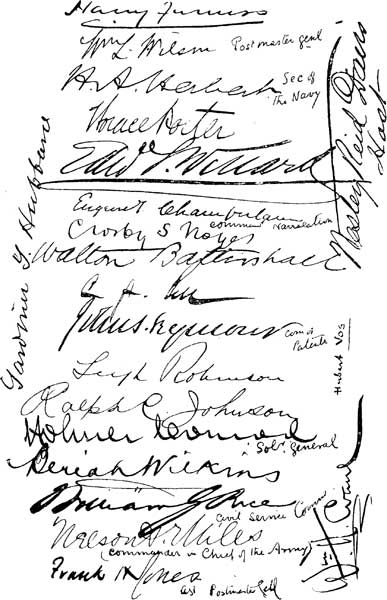 Harry Furniss
Wm L. Wilson Postmaster genl
H. A. Herbert Sec of the Navy
Horace Porter
Edw S. Willard
Chamberlain
Crosby S Noyes
Walton Battershall
Seymour Com of Patents
Leigh Robinson
Ralph C Johnson
Holmes Conrad Solr. General
Beriah Wilkins
Civil Service Comm
Nelson A. Miles
(Commander in Chief of the Army)
Frank H Jones
ast Postmaster Genl
Gardiner G Hubbard
Wesley Reid Davis
Host
Hubert Vos